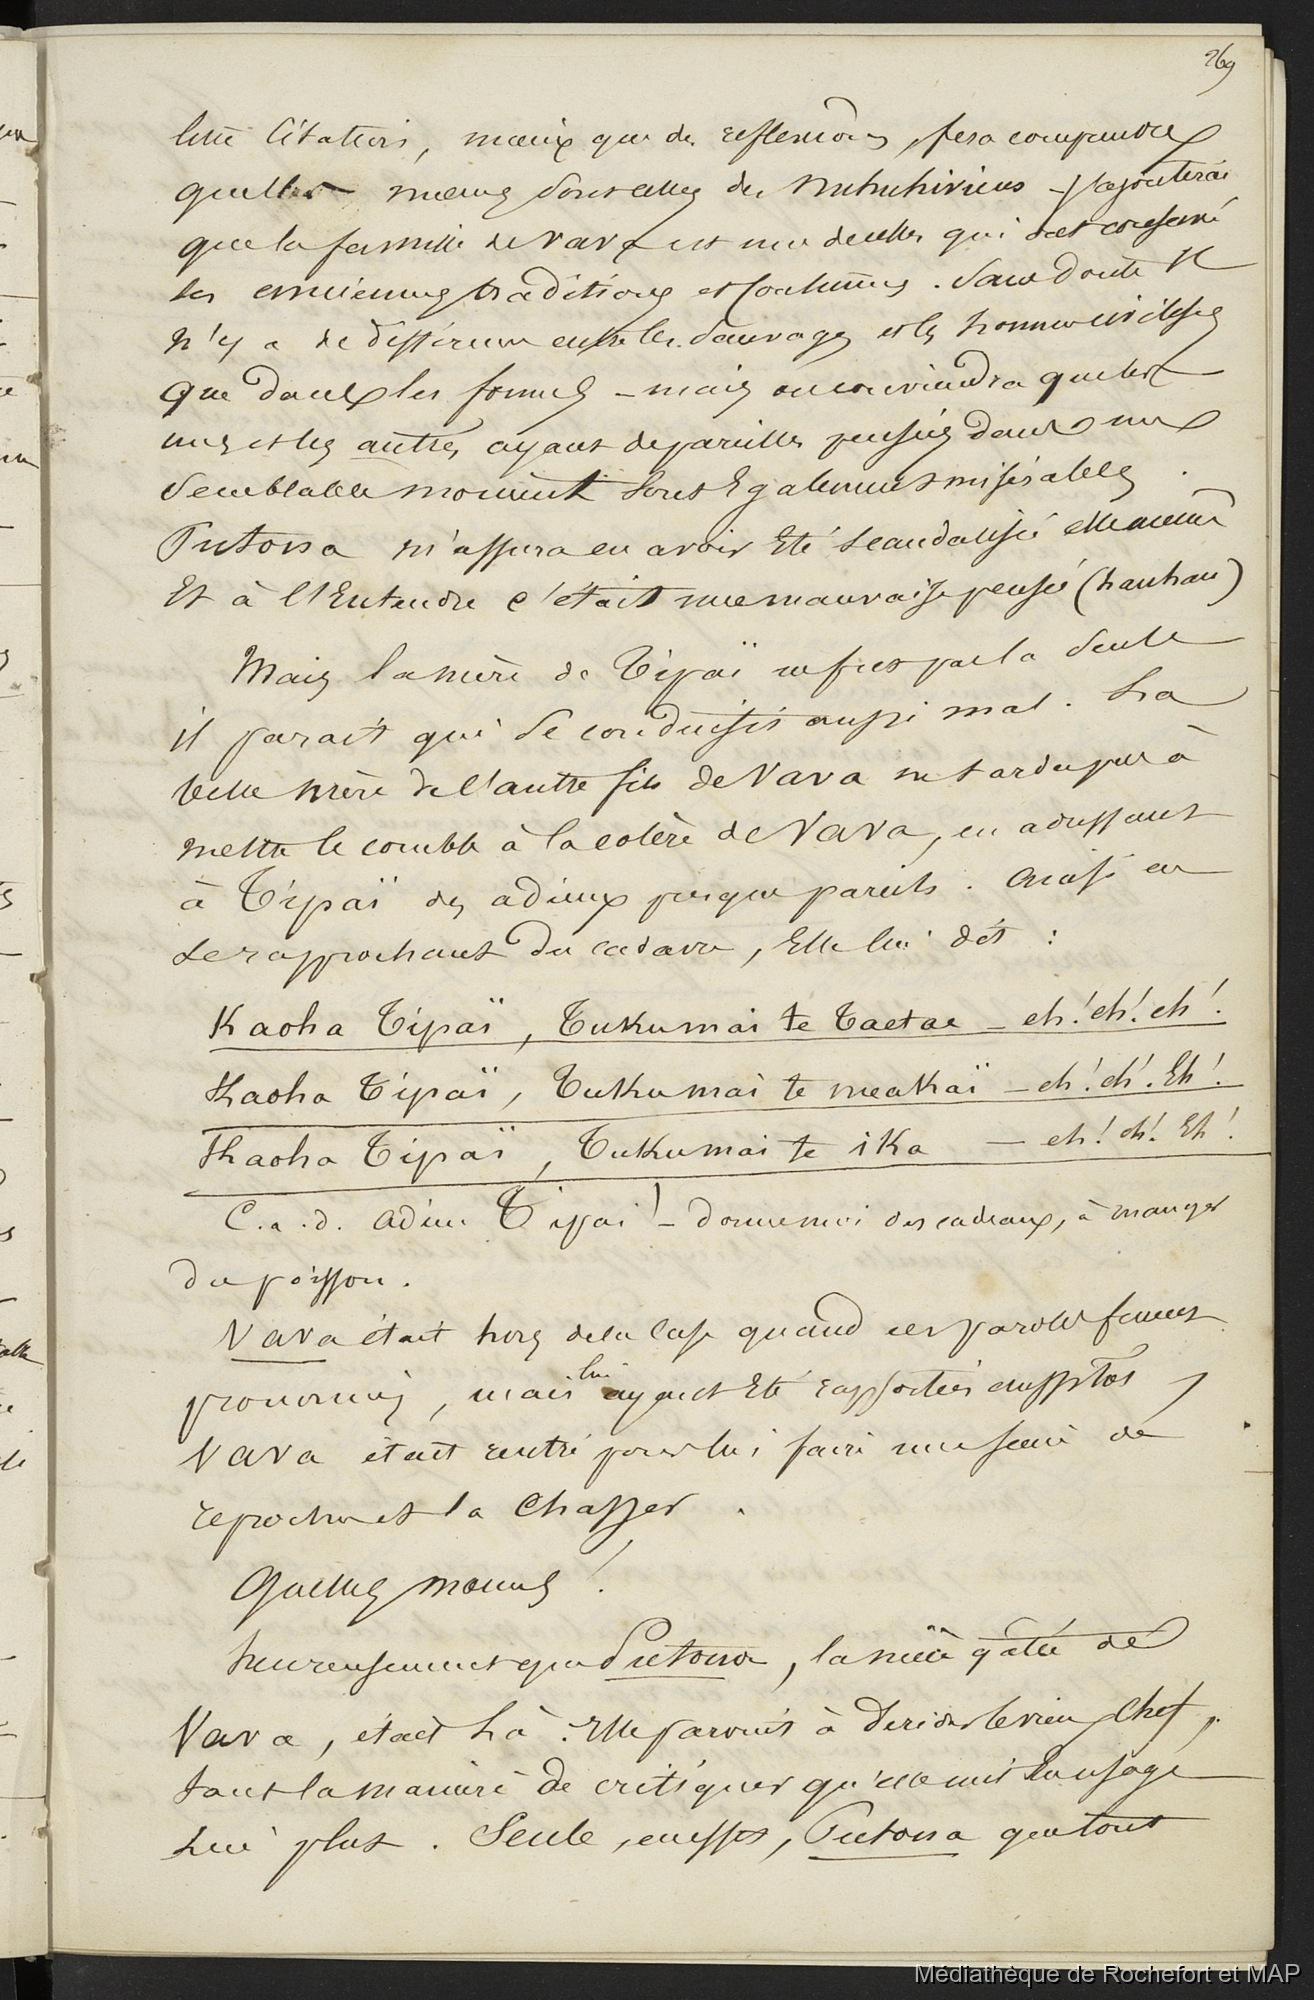 269
cette citation, mieux que des reflexions, fera comprendre
quelles mœurs sont celles des Nukuhiviens - J'ajouterai
que la famille de Vava est une de celles qui ont conservé
les anciennes traditions et coutumes. Sans doute il
n'y a de différence entre les sauvages et les hommes civilisés
que dans les formes - mais on conviendra que les
uns et les autres, ayant de pareilles pensées dans un
semblable moment sont également misérables.
Putona m'assura en avoir été scandalisée elle même
Et à l'Entendre c'était une mauvaise pensée (hauhau)
Mais la mère de Tipaï ne fut pas la seule
il parait qui se conduisit aussi mal. La
belle mère de l'autre fils de Vava ne tarda pas à
mettre le comble à la colère de Vava, en adressant
à Tipaï des adieux presque pareils. Ainsi en
se rapprochant du cadavre, Elle lui dit :
Kaoha Tipaï, Tukumai te Taetae - eh! eh! eh!
Kaoha Tipaï, Tukumai te meakaï - eh! eh! Eh!
Kaoha Tipaï, Tukumai te ika - eh! eh! Eh!
C.a.d. Adieu Tipai! - donne moi des cadeaux, à manger
du poisson.
Vava était hors de la case quand ces paroles furent
prononcées, mais lui ayant Eté rapportées aussitôt
Vava était rentré pour lui faire une scène de
reproches et la chasser.
Quelles mœurs!
heureusement que Putona, la nièce gâtée de
Vava, était là. Elle parvint à derider le vieux chef,
tant la manière de critiquer qu'elle mit en usage
lui plut. Seule, en effet, Putona que tout
Médiathèque de Rochefort et MAP